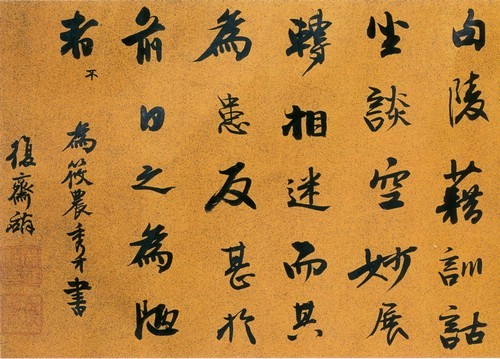 句陵藉訓詁
坐談空妙展
轉相迷而其
為患反甚於
前日之為陋
者不
為筱農秀才書
復齋